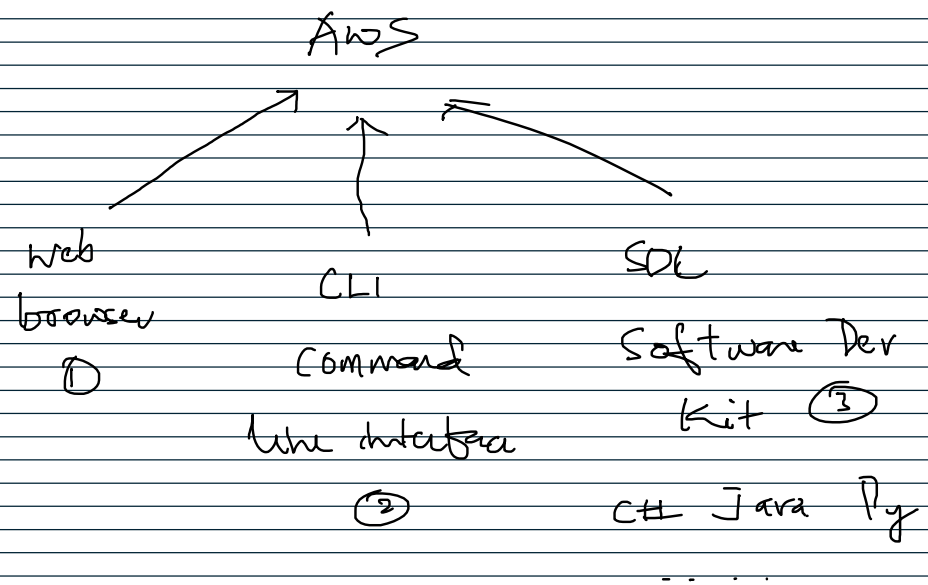 AWS
Web
browser
①
CLI
Command
line interface
②
SDK
Software Dev
Kit ③
C# Java Py